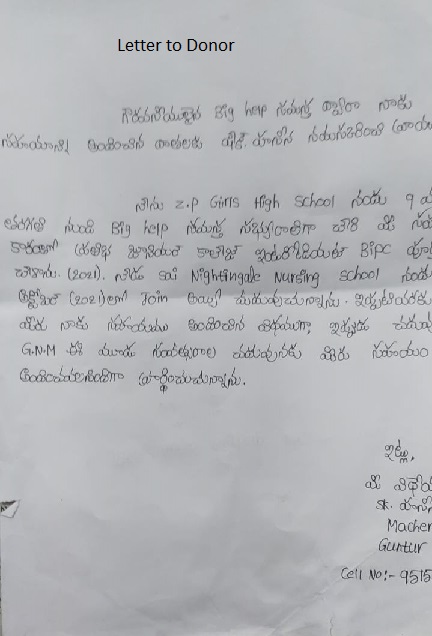 Letter to Donor
గౌరవనీయులైన Big help సమస్త ద్వారా నాకు
సహాయాన్ని అందించిన దాతలకు షేక్.
నేను Z.P Girls High School నందు 9 వ
తరగతి నుండి Big help సమస్త సభ్యురాలిగా చేరి మీ
జూనియర్ కాలేజి ఇంటర్మీడియట్ Bipc
చేశాను. (2021). నేను Sai Nightingale Nursing School నందు
(2021)లో Join అయ్యి చదువుచున్నాను. ఇప్పటివరకు
మీరు నాకు సహాయము అందించిన విధముగా, ఇప్పుడు
G.N.M ఈ మూడు సంవత్సరాల చదువునకు మీరు సహాయం
అందించవలసిందిగా ప్రార్థించుచున్నాను.
ఇట్లు,
మీ
SK.
Macher
Guntur
Cell No:- 9515